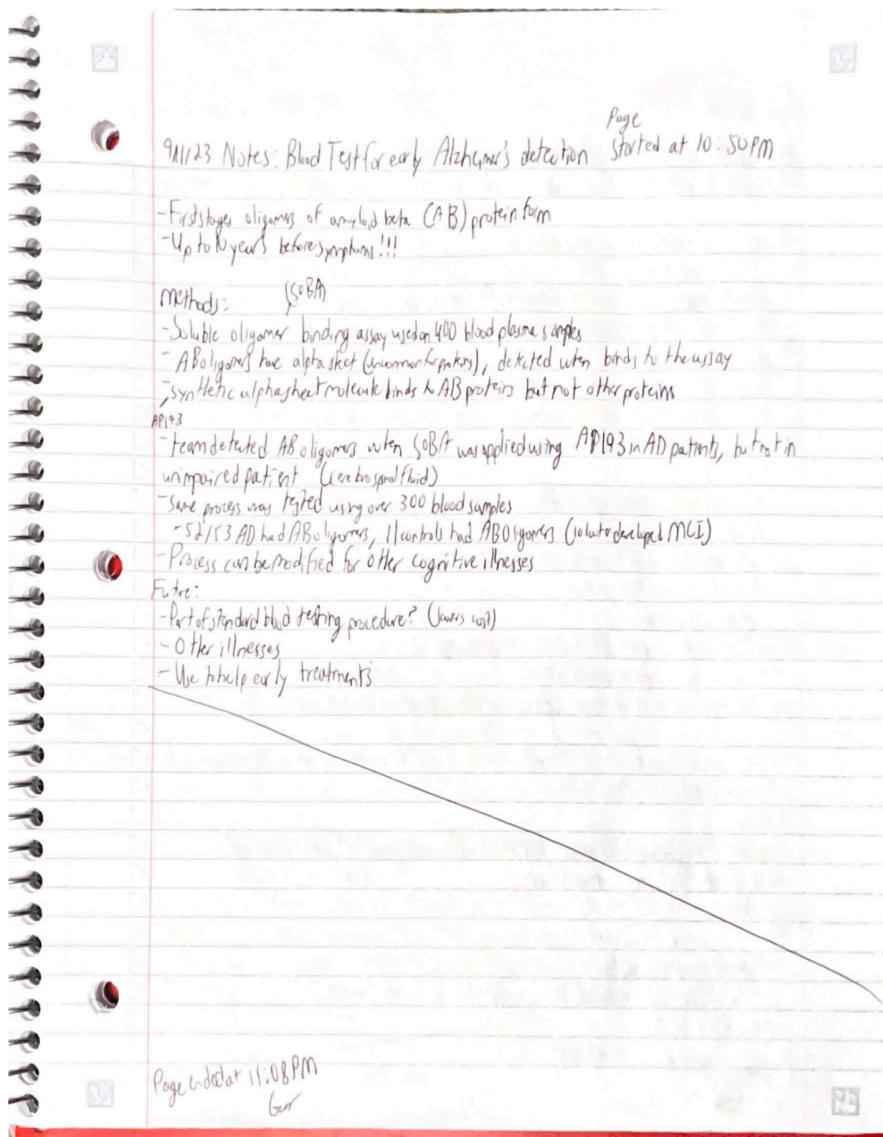 9/11/23 Notes: Blood Test for early Alzheimer's detection
Page
Started at 10:50PM
- First stages oligomers of amyloid beta (AB) protein form
- Up to 10 years before symptoms!!!
methods:
(SOBA)
- Soluble oligomer binding assay used on 400 blood plasma samples
- AB oligomers have alpha sheet (uncommon for proteins), detected when binds to the assay
- synthetic alpha sheet molecule binds to AB proteins but not other proteins
AP193
- team detected AB oligomers when SOBA was applied using AP193 in AD patients, but not in
unimpaired patient (cerebrospinal fluid)
- same process was tested using over 300 blood samples
- 52/53 AD had AB oligomers, 11 controls had AB Oligomers (10 later developed MCI)
- Process can be modified for other cognitive illnesses
Future:
- Part of standard blood testing procedure? (lowers cost?)
- Other illnesses
- Use to help early treatments
Page ended at 11:08PM